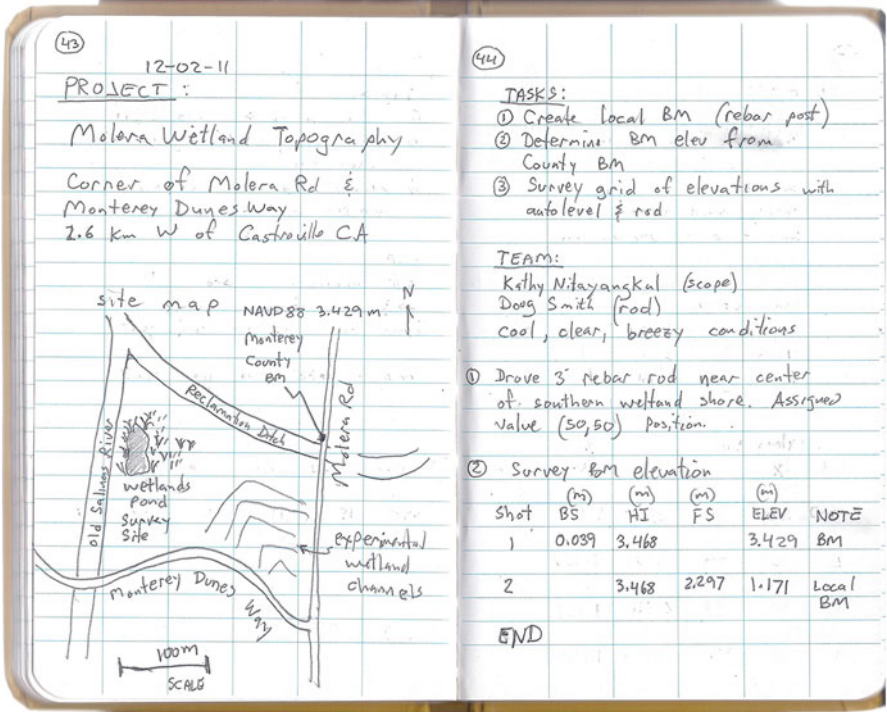 43
12-02-11
PROJECT:
Molera Wetland Topography
Corner of Molera Rd &
Monterey Dunes Way
2.6 km W of Castroville CA
site map
NAVD88 3.429 m
N
Monterey
County
BM
Reclamation Ditch
Molera Rd
Old Salinas River
wetlands
pond
Survey
Site
experimental
wetland
channels
Monterey Dunes Way
100m
SCALE
44
TASKS:
① Create Local BM (rebar post)
② Determine BM elev from
County BM
③ Survey grid of elevations with
autolevel & rod
TEAM:
Kathy Nitayangkul (scope)
Doug Smith (rod)
cool, clear, breezy conditions
① Drove 3' rebar rod near center
of southern wetland shore. Assigned
value (50,50) position.
② Survey BM elevation
(m) (m) (m) (m)
Shot BS HI FS ELEV NOTE
1 0.039 3.468 3.429 BM
2 3.468 2.297 1.171 Local
BM
END